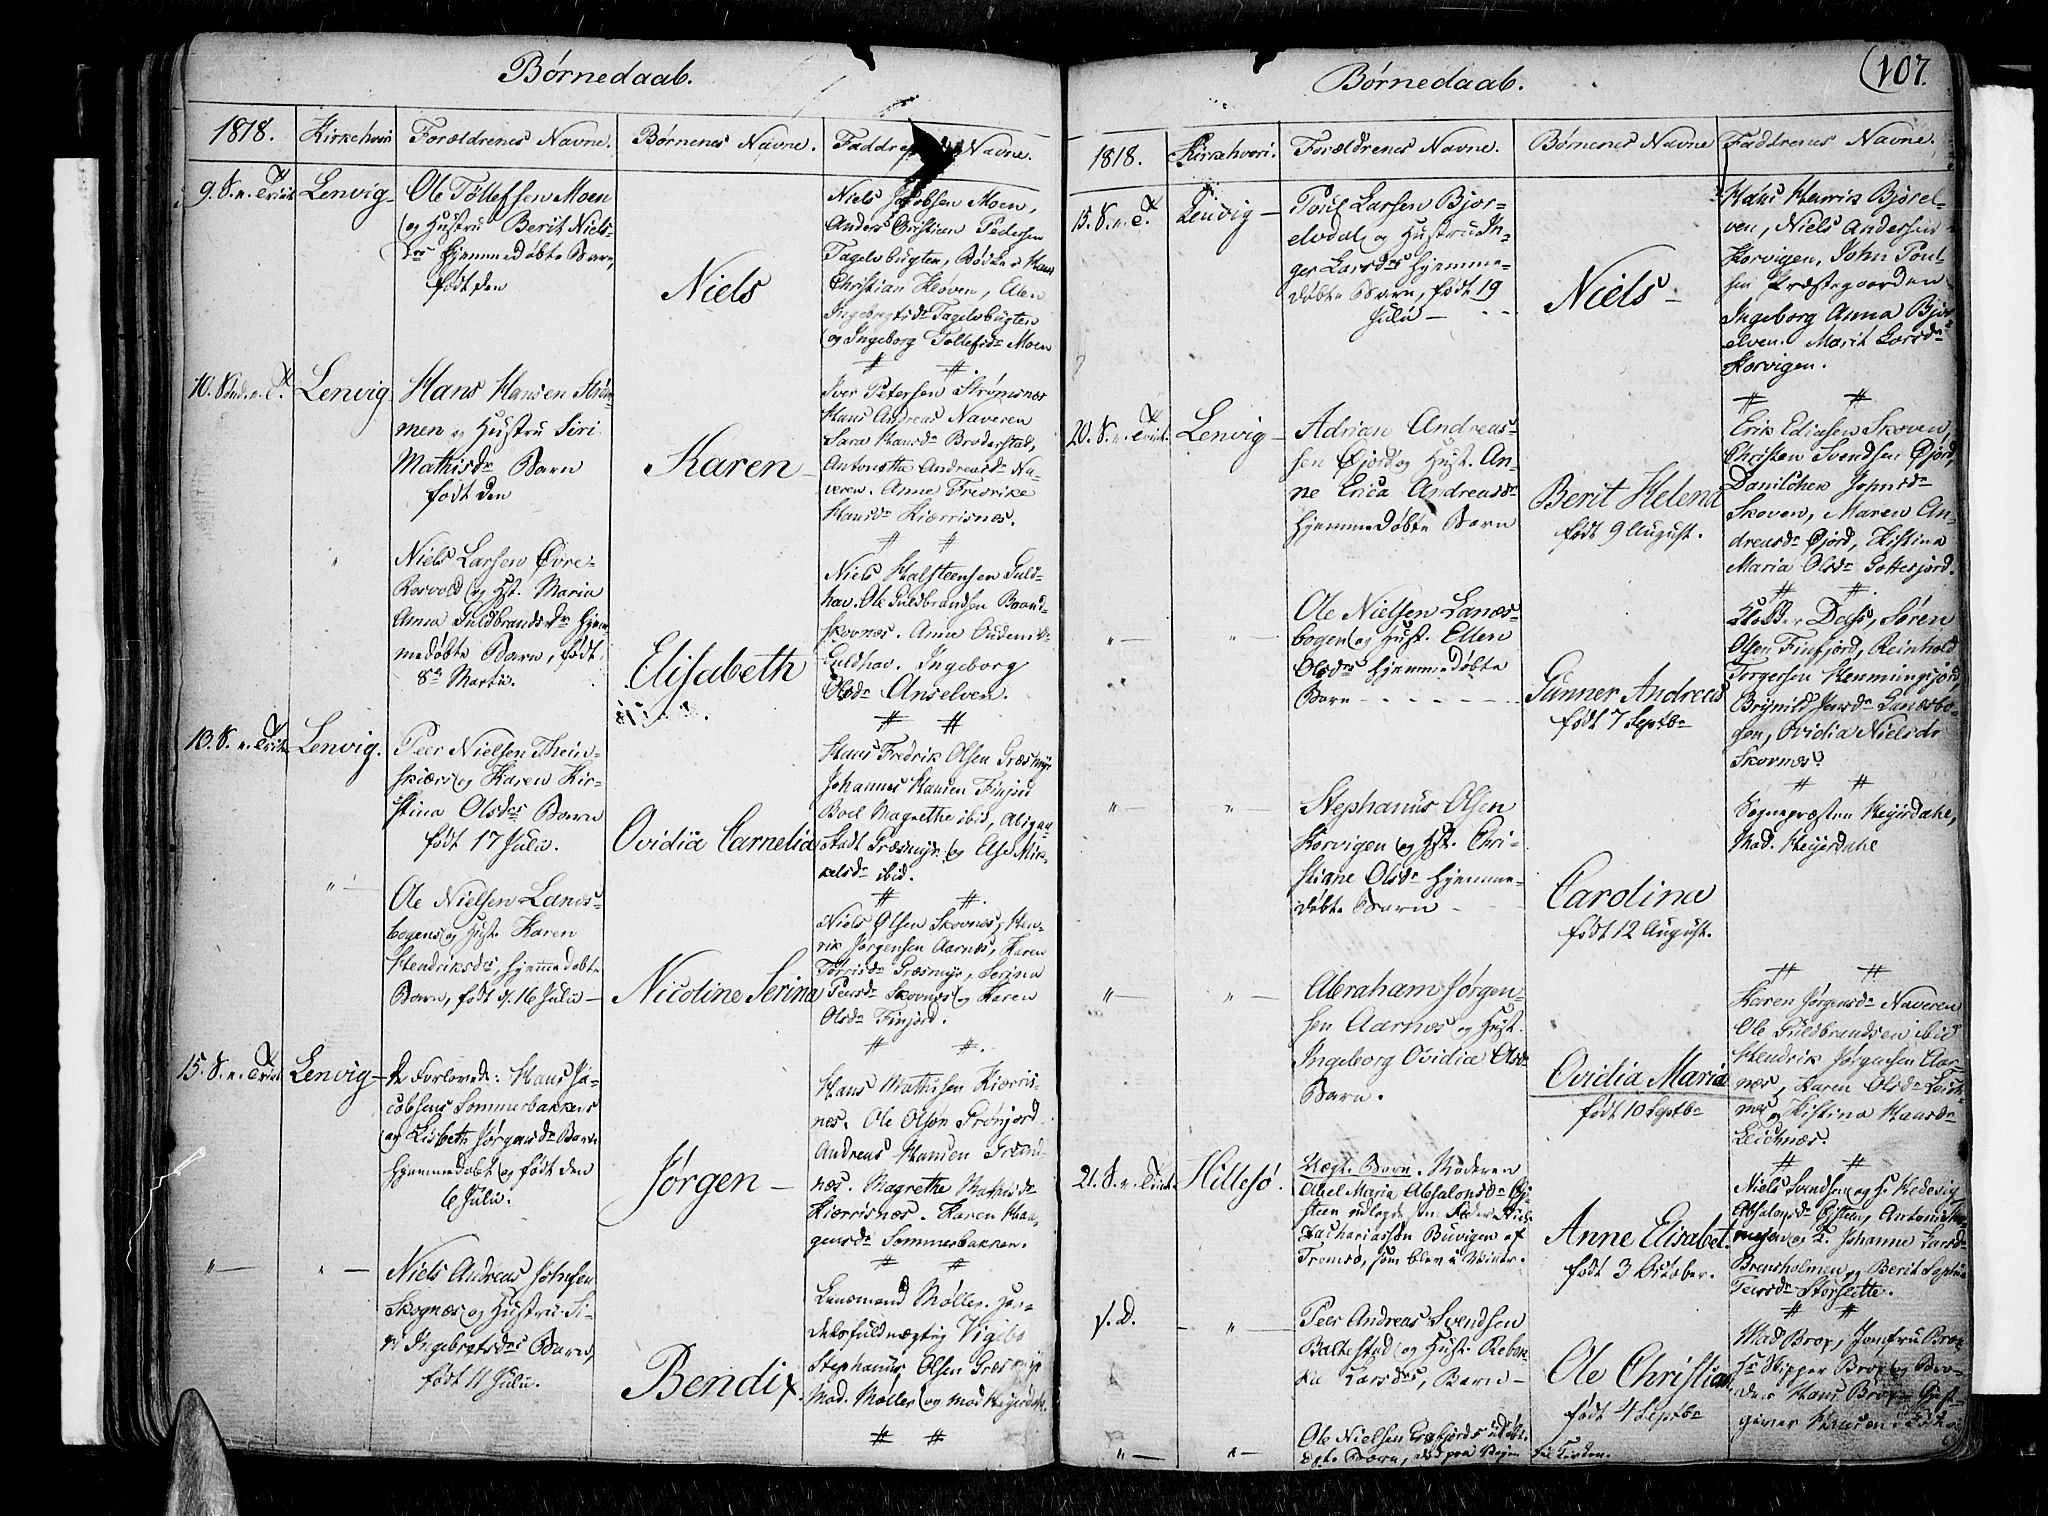 Børnedaab.
1818.
Kirkehver
Forældrenes Navne.
Børnenes Navne.
Faddrenes Navne.
9. S. n. Trinit
Lenvig
Ole Tøllefsen Moen
og Hustru Berit Niels-
Hjemmedøbte Barn,
født den
Niels
Niels Jacobsen Moen,
Anders Christian Pedersen
Christian Kløven, Elen
og Ingeborg Tollefsdr Moen
10. Sønd. n. T.
Lenvig
Hans Hansen Ström-
men og Hustru Siri
Mathisdr Barn
født den
Karen
Iver Petersen Strømsnæs
Hans Andreas Naveren
Sara Hansdr Broderstad,
Antonethe Andreasdr Na-
veren. Anne Fredrike
Hansdr Kiærrisnes.
Niels Larsen Øvre-
Rosvold og Hst. Maria
Anna Guldbrandsdr Hjem-
medøbte Barn, født
8de Martii.
Elisabeth
Niels Halsteensen Guld-
hav. Ole Guldbrandsen Brand-
skovnæs. Anne
Guldhav. Ingeborg
Olsdr Anselven.
13. S. n. Trinit
Lenvig.
Peer Nielsen Thein-
skiær og Karen Kir-
stina Olsdrs Barn
født 17 Julii.
Ovidia Carnelia
Hans Fredrik Olsen Græsmyr
Johannes Hansen Finjord
Boel Magrethe ibid, Abigael
Stadt Græsmyr og Else Mik-
kelsdr ibid.
Ole Nielsen Lanæs-
bogens og Hust. Karen
Hendriksdrs, hjemmedøbte
Barn, født d. 16 Julii
Nicoline Serina
Niels Olsen Skovnæs, Hen-
rik Jørgensen Aarnes, Karen
Torrisdr Græsmyr, Serina
Peersdr Skovnæs og Karen
Olsdr Finjord.
15. S. n. Trinit
Lenvig
De Forlovede: Hans Ja-
cobsens Sommerbakkens
og Lisbeth Jørgensdr Barn
Hjemmedøbt og født den
6 Julii.
Jørgen
Hans Mathisen Kiærris-
nes. Ole Olsen Trønjord
Andreas Hansen Grund-
næs. Magrethe Mathisdr
Kiærrisnæs. Karen
Sommerbakken.
Niels Andreas Johnsen
Skognæs og Hustru
Ingebretsdrs Barn,
født 11 Julii.
Bendix.
Lensmand Møller.
Stephanus Olsen Græsmyr
Mad. Møller og Mad Heyerdahl.
Børnedaab.
107.
1818.
Kirkehveri.
Forældrenes Navne.
Børnenes Navne
Faddrenes Navne.
15. S. n. T.
Lenvig
Poul Larsen Bjor-
elvdal og Hustru In-
ger Larsdrs Hjemme-
døbte Barn, født 19
Julii
Niels
Hans Henrik Bjorel-
ven, Niels Andersen
Korvigen, John Poul-
sen Præstegaarden
Ingeborg Anna Bjor-
elven. Marit Larsdr
Korvigen.
20. S. n. Trinit.
Lenvig
Adrian Andreas-
sen Øjord og Hust. An-
ne Erica Andreasdr
Hjemmedøbte Barn
Berit Helena
født 9 August.
Erik Ediasen Skoven,
Christen Svendsen Øjord,
Danilchen Johnsdr
Skoven, Maren An-
dreasdr Øjord, Kistina
Maria Olsdr Gottesjord.
Ole Nielsen Lanæs-
bogen og Hust. Ellen
Olsdrs Hjemmedøbte
Barn
Gunner Andreas
født 7 Septbr
Dass, Sören
Olsen Finfjord, Reinhold
Torgersen Hemmingsjord,
Brynild Jensdr Lanæsbo-
gen, Ovidia Nielsdr
Skovnæs.
Stephanus Olsen
Korvigen og Hst. Chri-
stiane Olsdr Hjemme-
døbte Barn
Carolina
født 12 August.
Sognepræsten Heyerdahl,
Mad. Heyerdahl
Abraham Jørgen-
sen Aarnæs og Hust.
Ingeborg Ovidia Olsdr
Barn.
Ovidia Maria
født 10 Septbr
Karen Jørgensdr Naveren
Ole Guldbrandsen ibid
Hendrik Jørgensen Aar-
næs, Karen Olsdr Leik-
næs og Kistina Hansdr
Leichnæs.
21. S. n. Trinit
Hillesø.
Uægt. Barn. Moderen
Abel Maria Absalonsdr Øj-
steen udlagde til Fader
Zachariassön Buvigen af
Tromsö, som blev
Anne Elisabet.
født 3 October.
Niels Svendsen og H. Hedevig
Absalonsdr Øisteen, Antoni
Johanne Larsdr
Brensholmen, og Berit
Peersdr Storslette.
s. D.
Peer Andreas Svendsen
Baltestad og Hust. Reben-
ka Larsdrs, Barn
Ole Christian
født 4 Septbr
Mad Brox, Jomfru Brox
Hr Skipper Brox og Bro-
der Hans Brox
Ole Nielsen
Barn, død paa Vejen til Kirken.